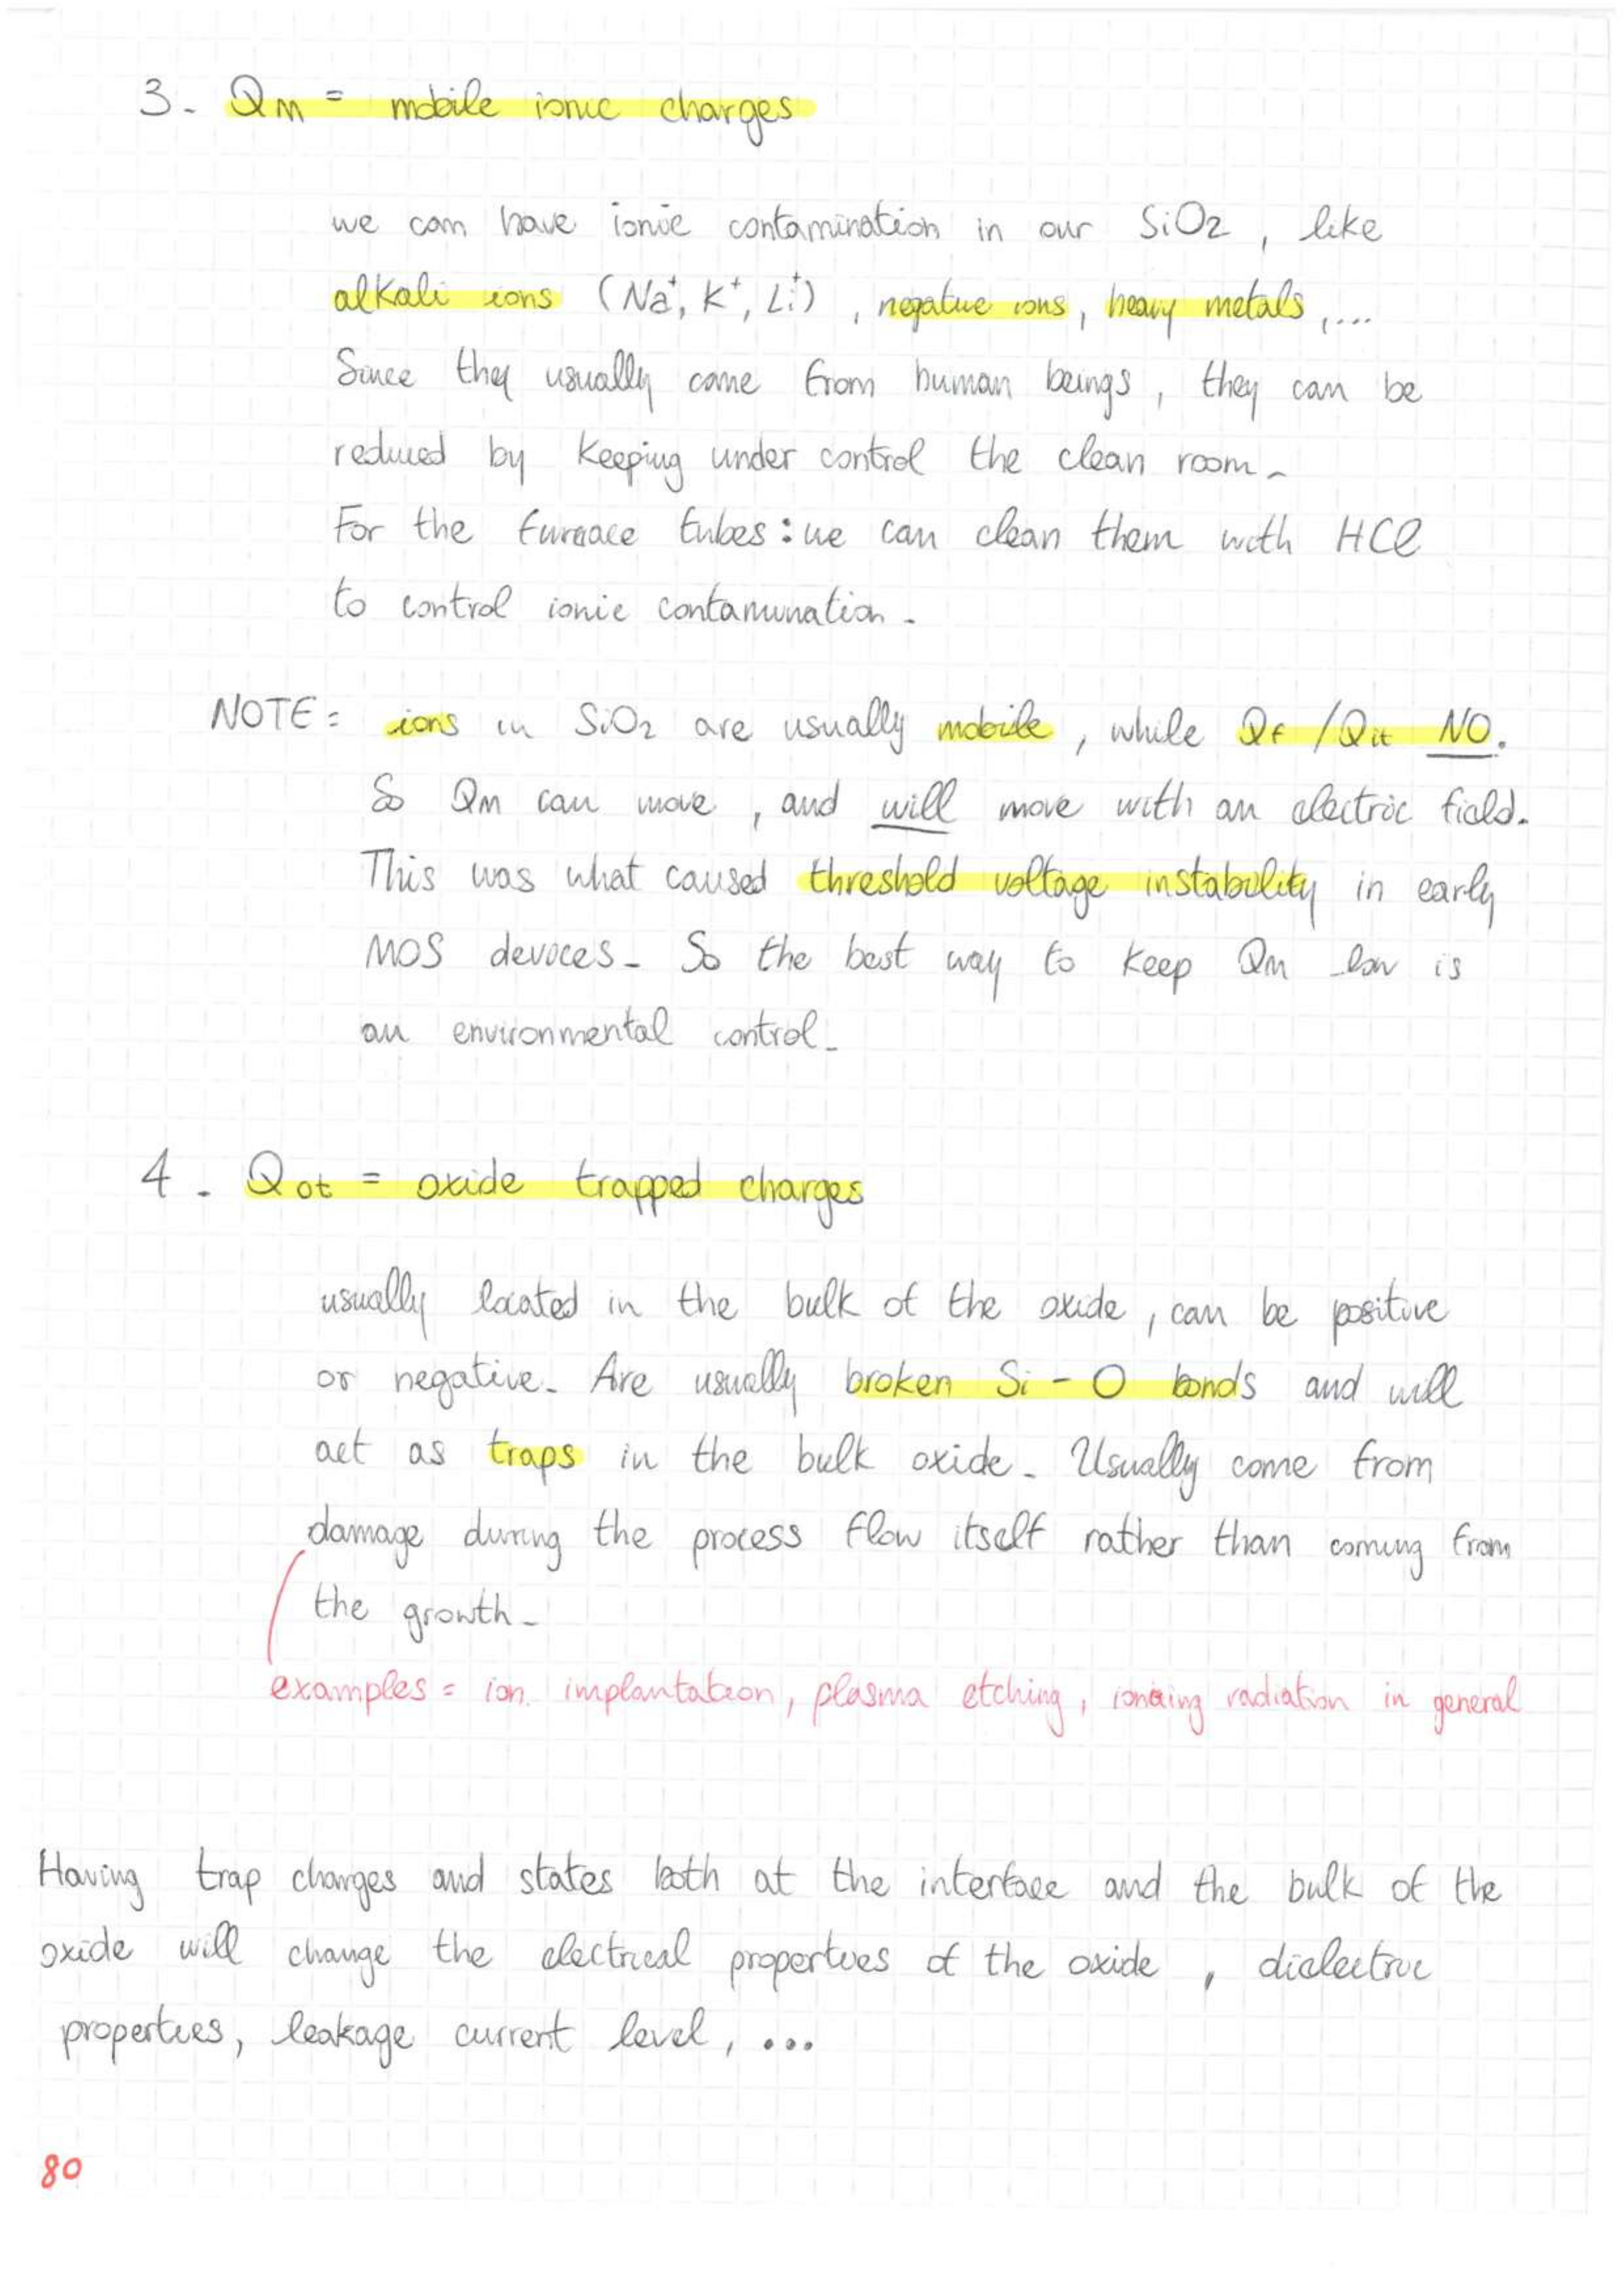 3- QM = mobile ionic charges
we can have ionic contamination in our SiO2, like
alkali ions (Na+, K+, Li+), negative ions, heavy metals,...
Since they usually come from human beings, they can be
reduced by keeping under control the clean room-
For the furnace tubes: we can clean them with HCl
to control ionic contamination-
NOTE = ions in SiO2 are usually mobile, while Qf/Qit NO.
So QM can move, and will move with an electric field.
This was what caused threshold voltage instability in early
MOS devices- So the best way to keep QM low is
an environmental control-
4. Qot = oxide trapped charges
usually located in the bulk of the oxide, can be positive
or negative. Are usually broken Si-O bonds and will
act as traps in the bulk oxide. Usually come from
damage during the process flow itself rather than coming from
the growth-
examples = ion implantation, plasma etching, ionizing radiation in general
Having trap charges and states both at the interface and the bulk of the
oxide will change the electrical properties of the oxide, dielectric
properties, leakage current level, ...
80